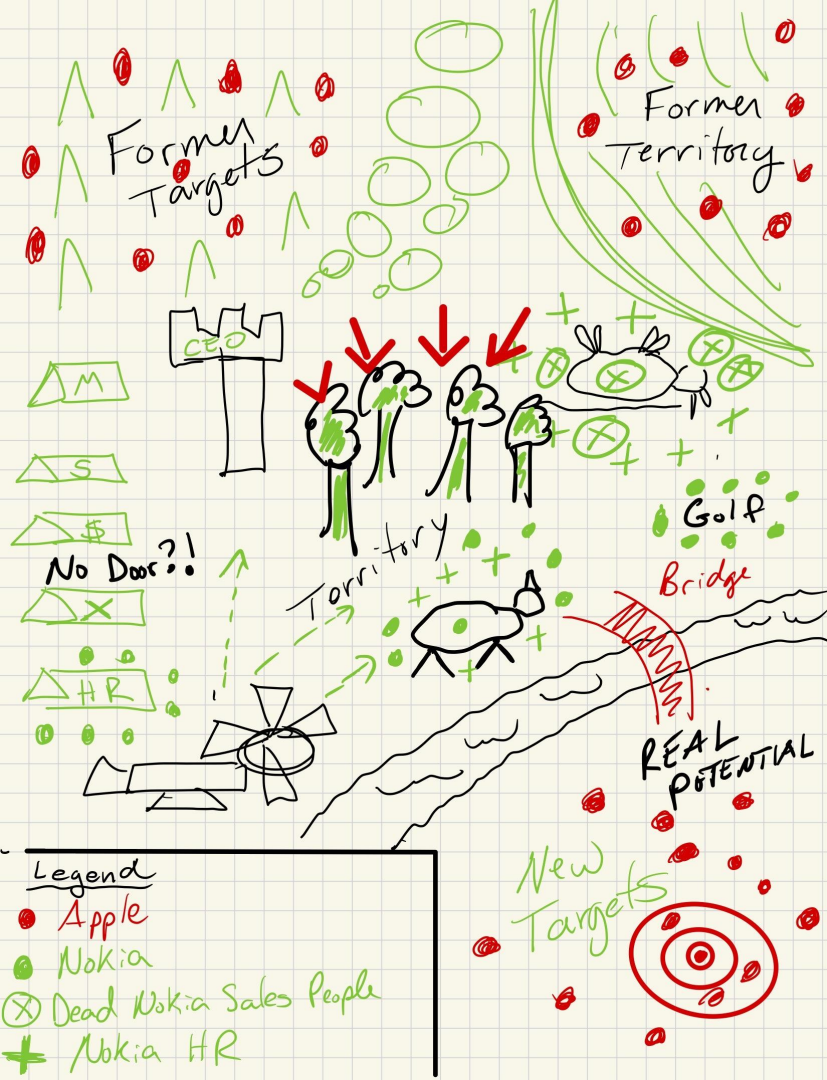 Former
Targets
Former
Territory
CEO
M
S
$
No Door?!
X
HR
Territory
Golf
Bridge
REAL
POTENTIAL
New
Targets
Legend
Apple
Nokia
Dead Nokia Sales People
Nokia HR